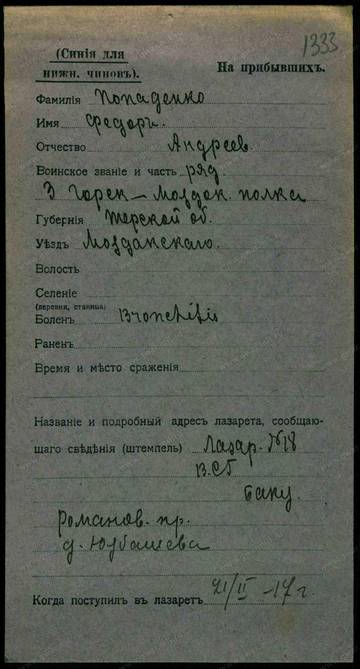 1333
(Синія для
нижн. чиновъ).
На прибывшихъ.
Фамилія Попаденко
Имя Федоръ
Отчество Андреев.
Воинское званіе и часть ряд.
3 Горск-Моздок. полка
Губернія Терской об.
Уѣздъ Моздакскаго.
Волость
Селеніе
(деревня, станица)
Боленъ Bronchitis
Раненъ
Время и мѣсто сраженія
Названіе и подробный адресъ лазарета, сообщаю-
щаго свѣдѣнія (штемпель) Лазар. №18
В.С.Г.
Баку.
Романов. пр.
д. Юзбашева
Когда поступилъ въ лазаретъ 21/II -17 г.